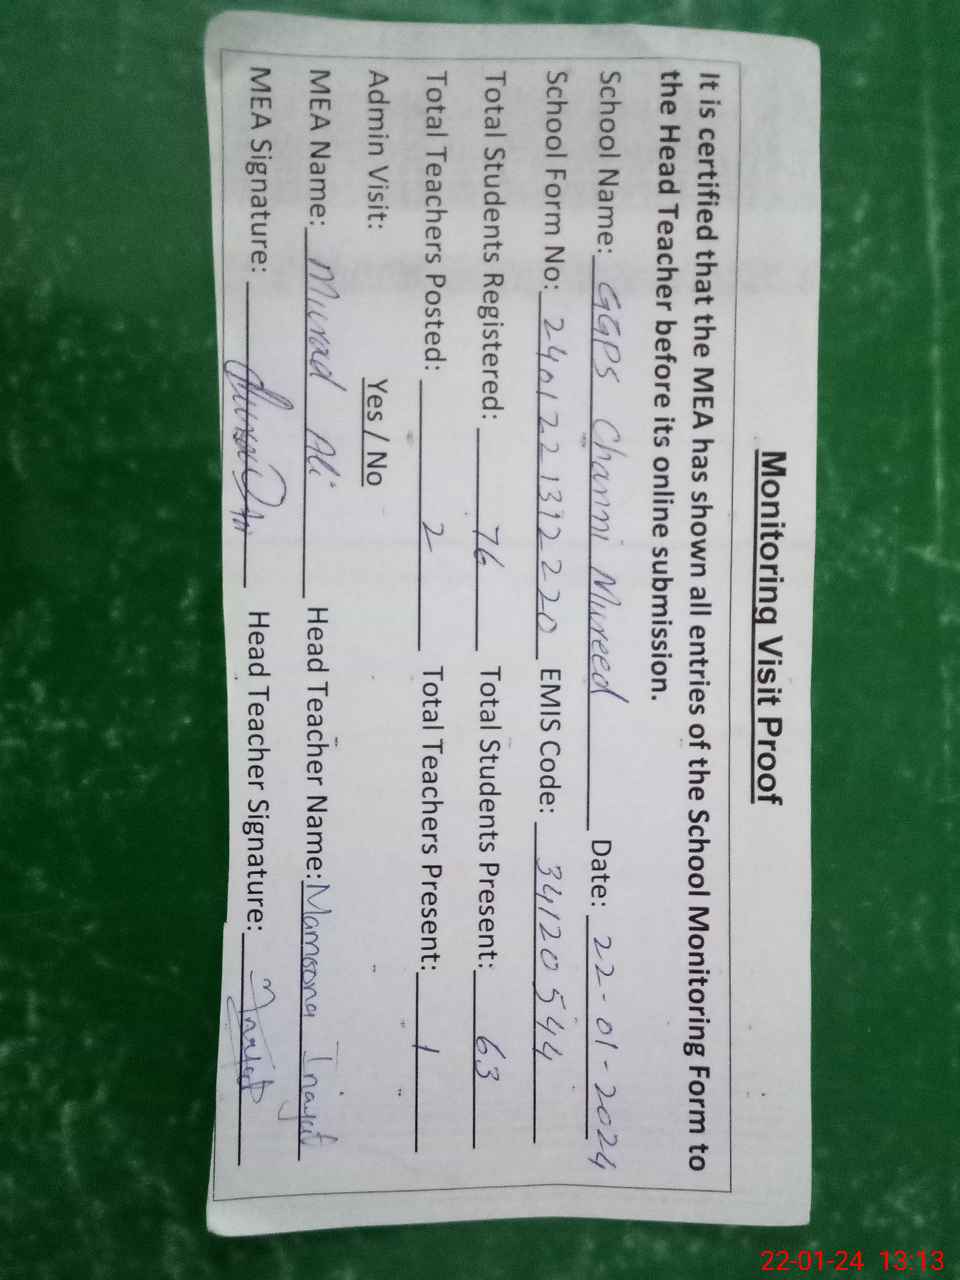 Monitoring Visit Proof
It is certified that the MEA has shown all entries of the School Monitoring Form to
the Head Teacher before its online submission.
School Name: GGPS Channi Mureed Date: 22-01-2024
School Form No: 2401221392220 EMIS Code: 34120544
Total Students Registered: 76 Total Students Present: 63
Total Teachers Posted: 2 Total Teachers Present: 1
Admin Visit: Yes / No
MEA Name: Murad Ali Head Teacher Name: Mamoona Inayat
MEA Signature: Head Teacher Signature: Inayat
22-01-24 13:13